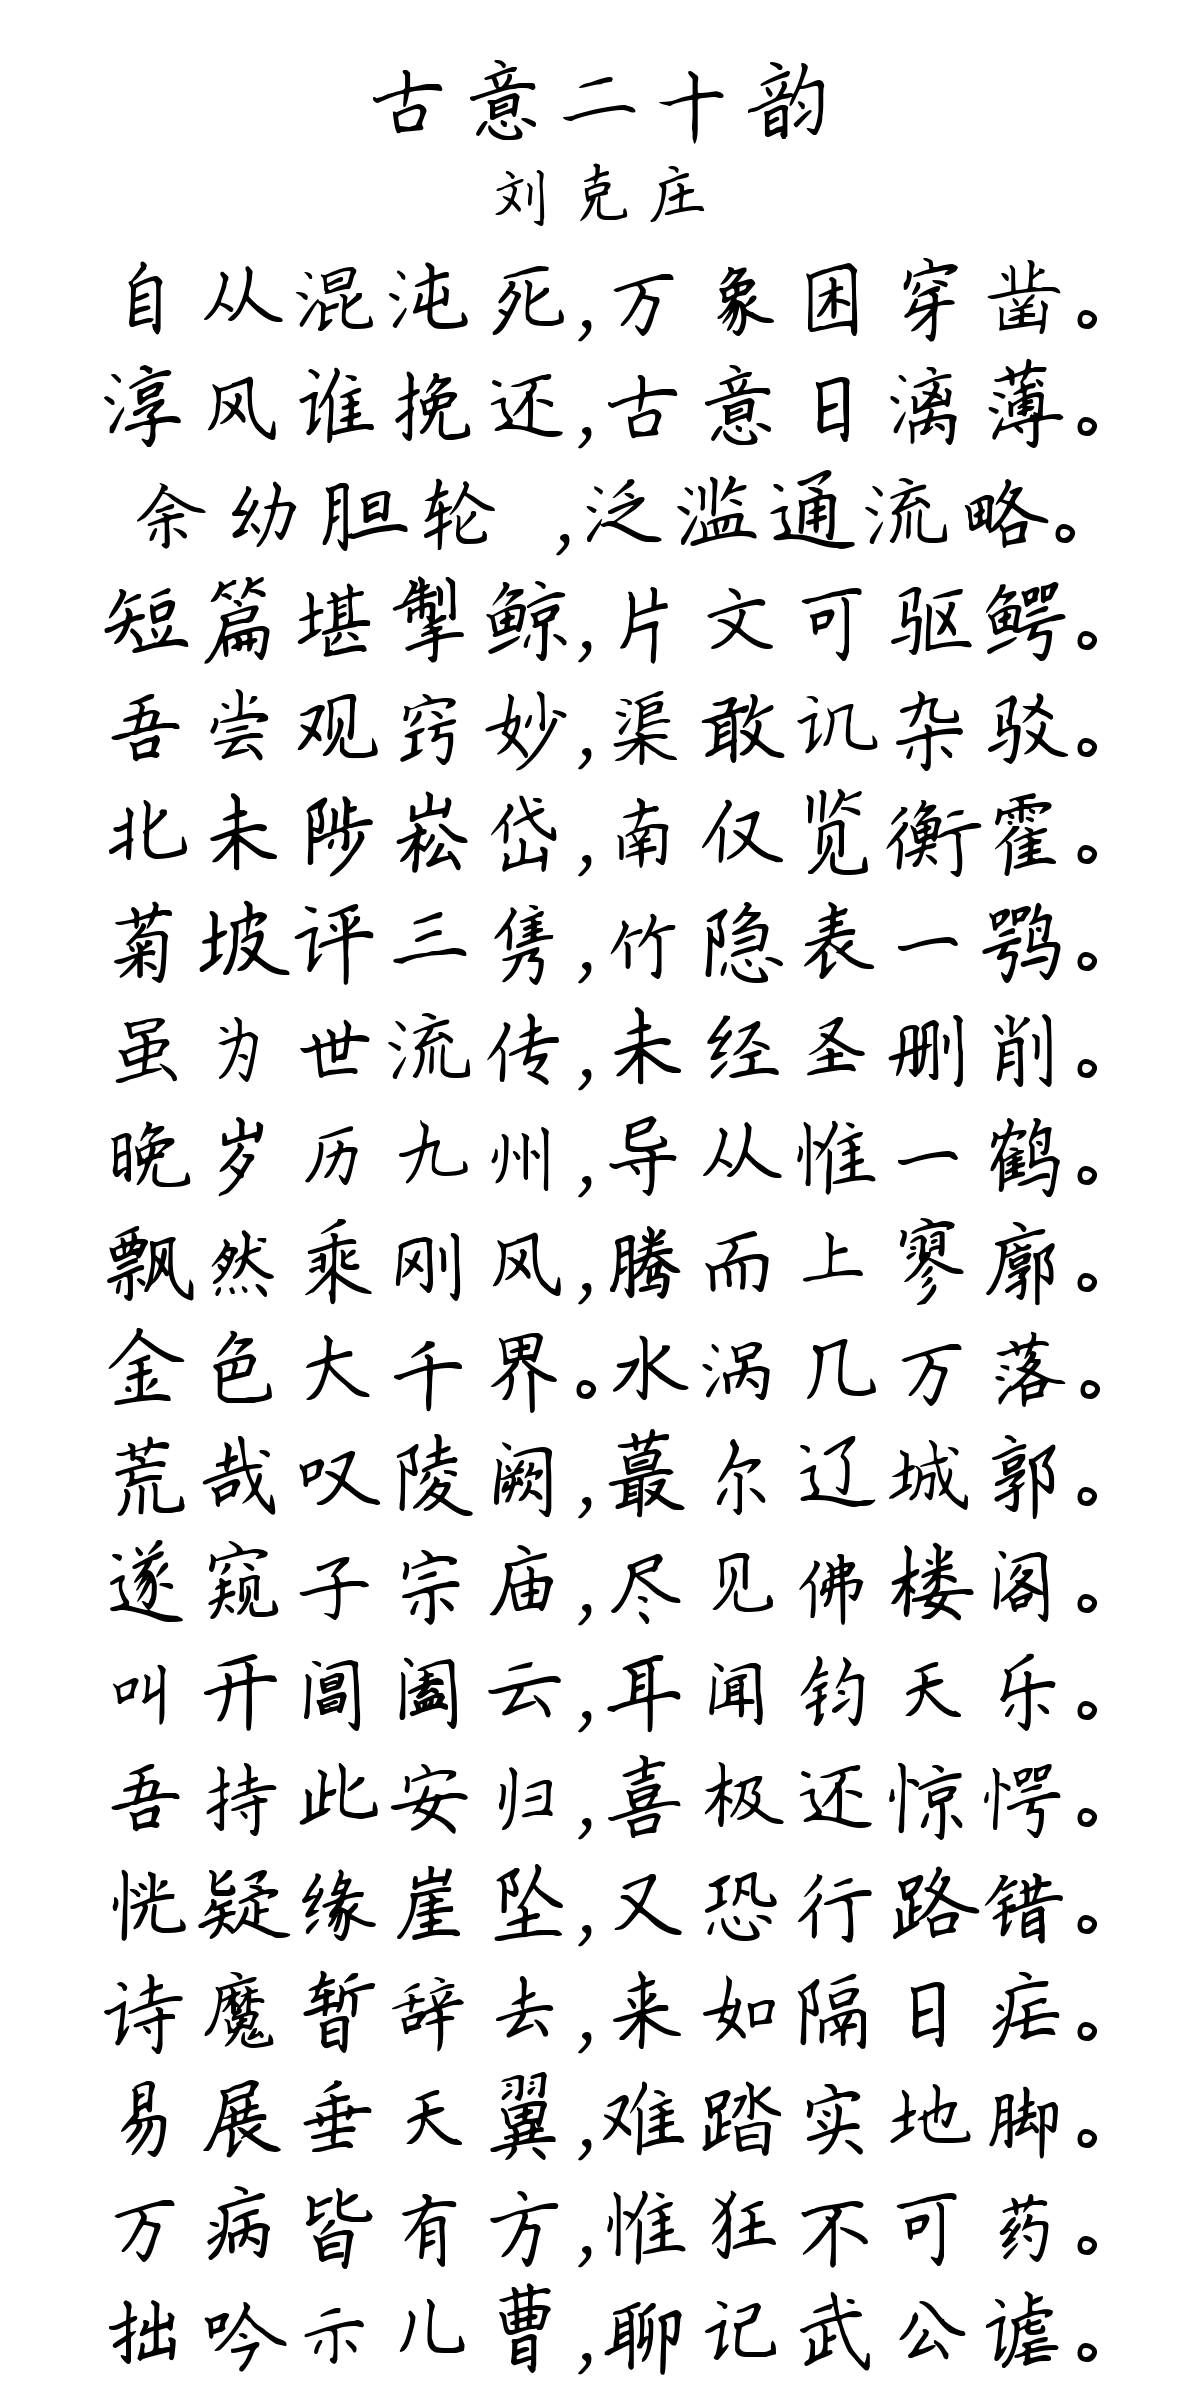 古意二十韵
刘克庄
自从混沌死,万象困穿凿。
淳风谁挽还,古意日漓薄。
余幼胆轮 ,泛滥通流略。
短篇堪掣鲸,片文可驱鳄。
吾尝观窍妙,渠敢讥杂驳。
北未陟崧岱,南仅览衡霍。
菊坡评三隽,竹隐表一鹗。
虽为世流传,未经圣删削。
晚岁历九州,导从惟一鹤。
飘然乘刚风,腾而上寥廓。
金色大千界。水涡几万落。
荒哉叹陵阙,蕞尔辽城郭。
遂窥子宗庙,尽见佛楼阁。
叫开阊阖云,耳闻钧天乐。
吾持此安归,喜极还惊愕。
恍疑缘崖坠,又恐行路错。
诗魔暂辞去,来如隔日疟。
易展垂天翼,难踏实地脚。
万病皆有方,惟狂不可药。
拙吟示儿曹,聊记武公谑。